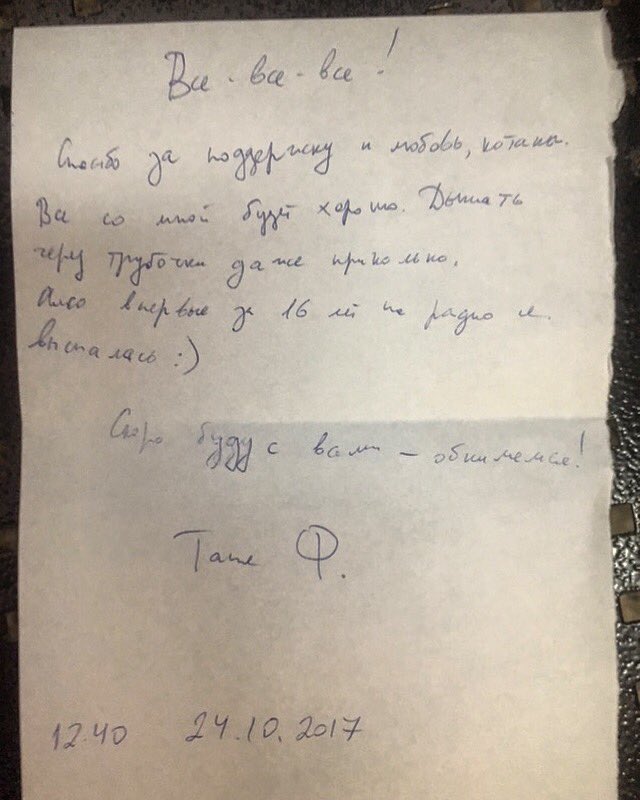 Все - все - все!
Спасибо за поддержку и любовь, котаны.
Все со мной будет хорошо. Дышать
через трубочки даже прикольно.
Also впервые за 16 лет на радио я
выспалась :)
Скоро буду с вами – обнимемся!
Таня Ф.
12.40 24.10.2017